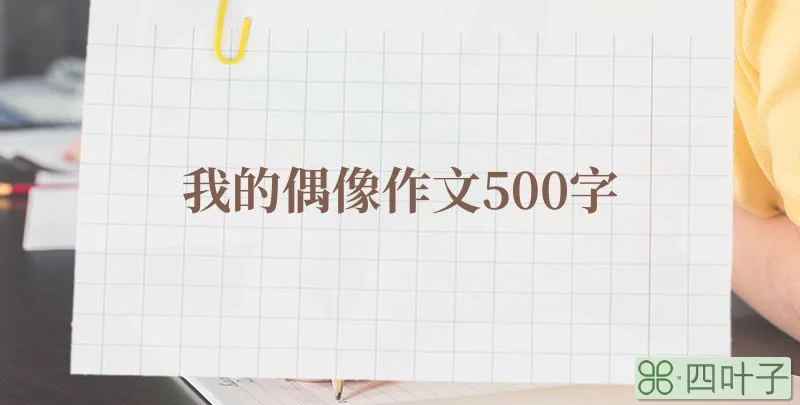 我的偶像作文500字
四叶子